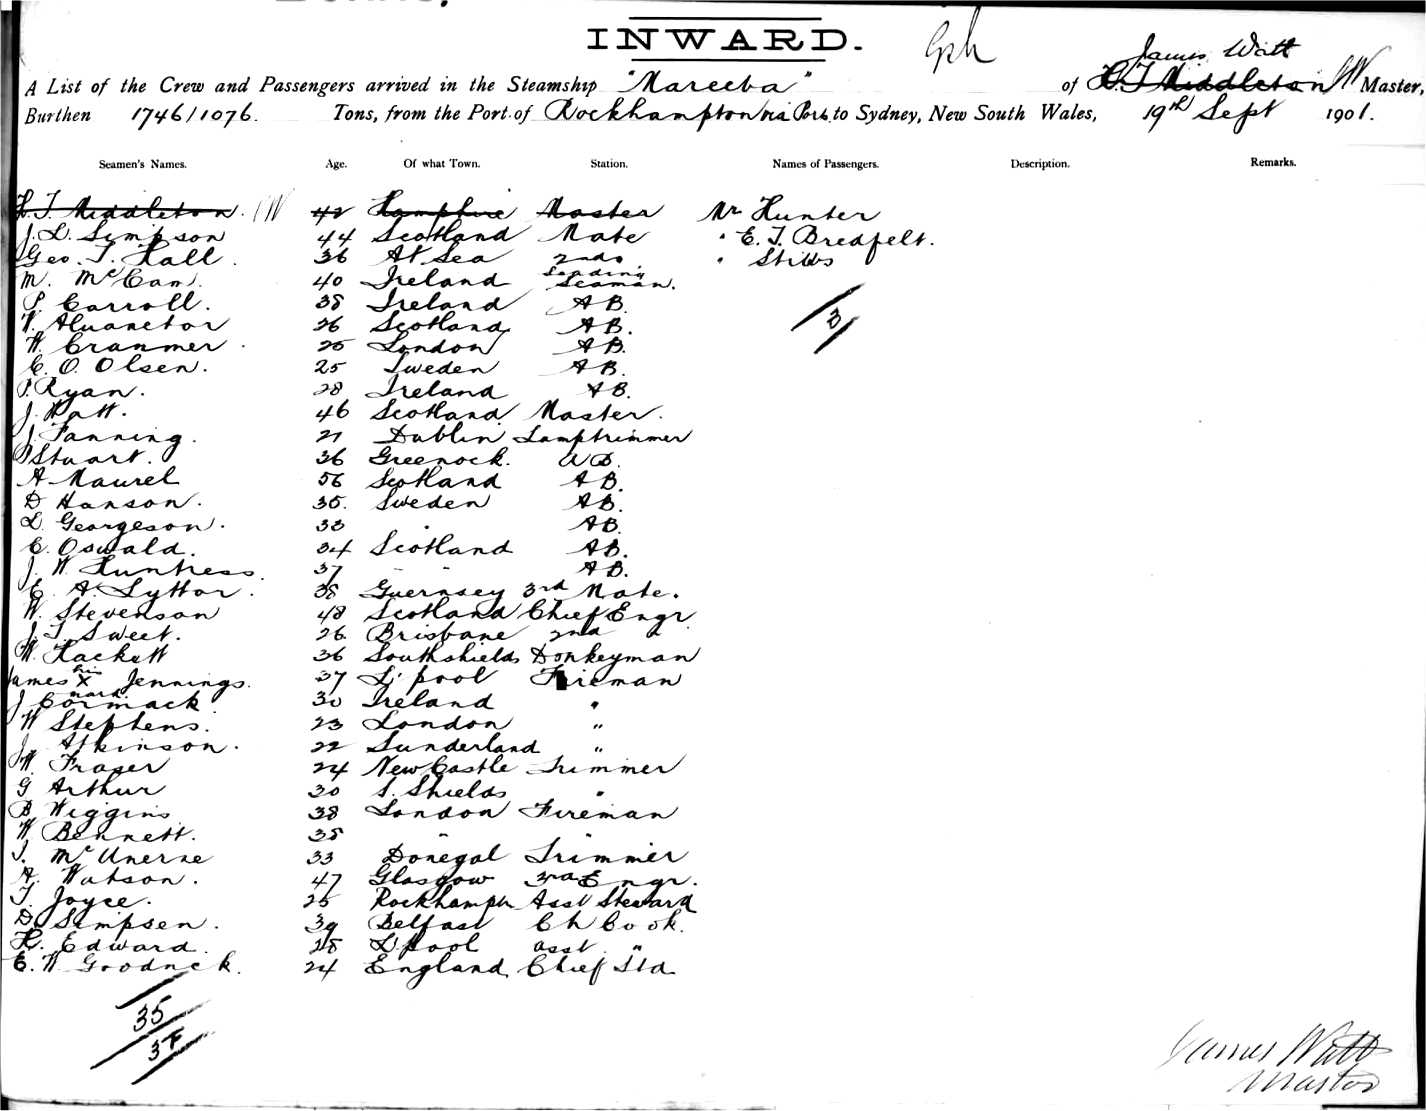 INWARD.
James Watt
A List of the Crew and Passengers arrived in the Steamship "Mareeba" of H. T. Middleton JW Master,
Burthen 1746/1076. Tons, from the Port of Rockhampton via Ports to Sydney, New South Wales, 19th Sept 1901.
Seamen's Names. Age. Of what Town. Station. Names of Passengers. Description. Remarks.
H. T. Middleton. JW 42 Hampshire Master Mr Hunter
J. D. Simpson 44 Scotland Mate " E. T. Bredfelt.
Geo. T. Hall. 36 At Sea 2nd do " Stibbs
M. McCan. 40 Ireland Leading Seaman.
P. Carroll. 38 Ireland AB. 3
26 Scotland AB.
W. Cranmer. 25 London AB.
C. O. Olsen. 25 Sweden AB.
P. Ryan. 28 Ireland AB.
J. Watt. 46 Scotland Master.
J. Fanning. 21 Dublin Lamptrimmer
Stuart. 36 Greenock. AB.
A Maurel 56 Scotland AB.
D Hanson. 35. Sweden AB.
L. Georgeson. 33 " AB.
C. Oswald. 34 Scotland AB.
J. W. Huntress. 37 " AB.
E. A. Lyttor. 38 Guernsey 3rd Mate.
W. Stevenson 48 Scotland Chief Engr
J. T. Sweet. 26 Brisbane 2nd "
W. Hackett 36 Southshields Donkeyman
James his X mark Jennings. 37 L'pool Fireman
J Cormack 30 Ireland "
W Stephens. 23 London "
J. Atkinson. 22 Sunderland "
W. Fraser 24 NewCastle Trimmer
G Arthur 30 S. Shields "
B Wiggins 38 London Fireman
W Bennett. 35 " "
J. Mc 33 Donegal Trimmer
A. Watson. 47 Glasgow 3rd Engr.
T. Joyce. 25 Rockhampn Asst Steward
D. Simpsen. 39 Belfast Ch Cook.
H. Edward. 28 L'pool asst "
E. W Goodrick. 24 England Chief Std
35
37
James Watt
Master